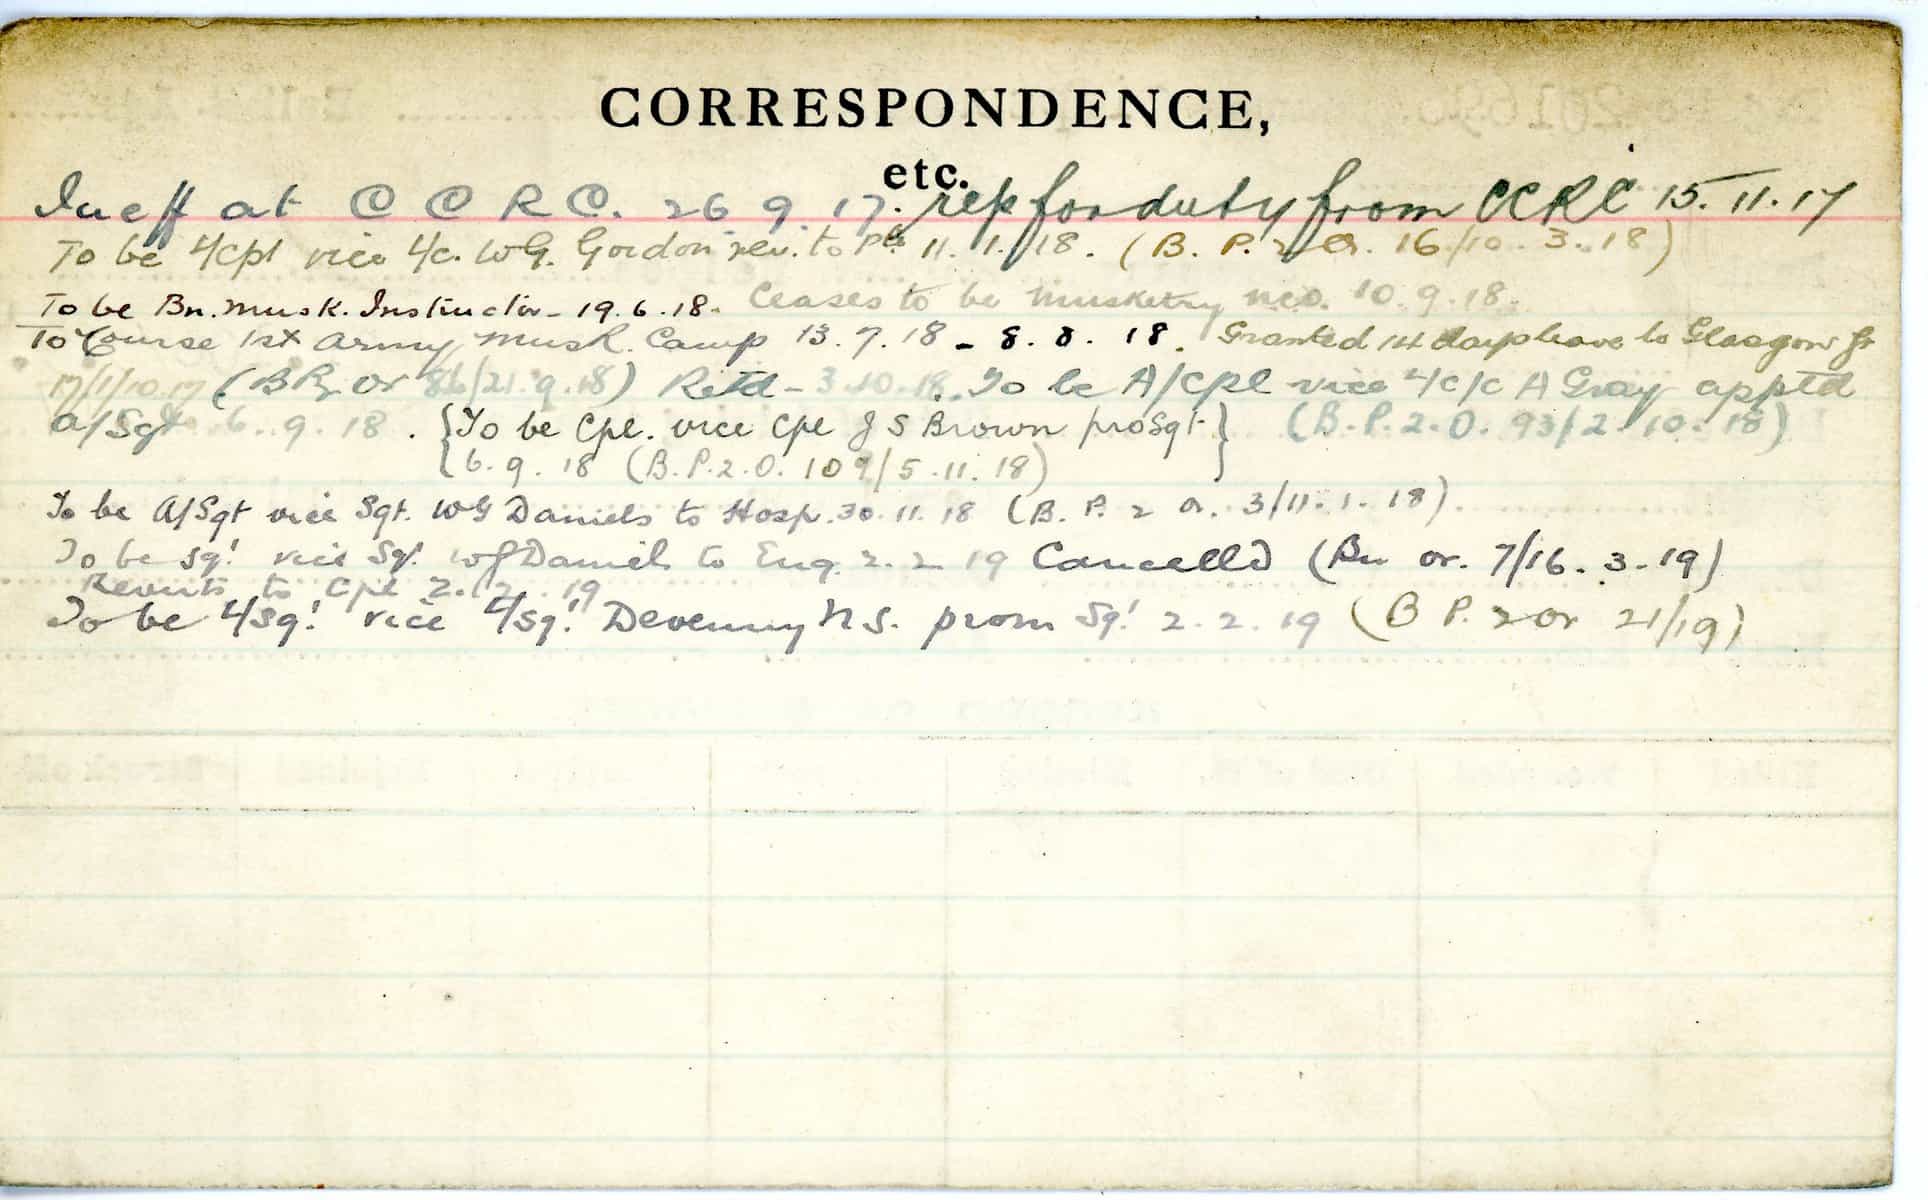 CORRESPONDENCE,
etc.
Ineff at C C R C. 26. 9. 17. rep for duty from CCRC 15. 11. 17
To be L/Cpl vice L/c. W G. Gordon rev. to Pte 11. 1. 18. (B. P. 2 Or. 16/10. 3. 18)
To be Bn. Musk. Instructor - 19. 6. 18. Ceases to be Musketry nco. 10. 9. 18.
To Course 1st Army Musk. Camp 13. 7. 18 - 8. 8. 18. Granted 14 days leave to Glasgow fr
(B P2 Or 86/21. 9. 18) Retd - 3.10.18. To be A/Cpl vice L/c/c A Gray apptd
a/Sgt 6. 9. 18. {To be Cpl. vice Cpl J S Brown pro Sgt} (B. P. 2. O. 93/2. 10. 18)
{6. 9. 18 (B. P. 2. O. 109/5. 11. 18)}
To be A/Sgt vice Sgt. W G Daniels to Hosp. 30. 11. 18 (B. P. 2 Or. 3/11. 1. 18).
To be Sgt vice Sgt. W G Daniels to Eng. 2. 2. 19 Cancelled (Bn or. 7/16. 3. 19)
Reverts to Cpl 2. 2. 19
To be L/Sgt vice L/Sgt Devenny N S. prom Sgt 2. 2. 19 (B P. 2 or 21/19)